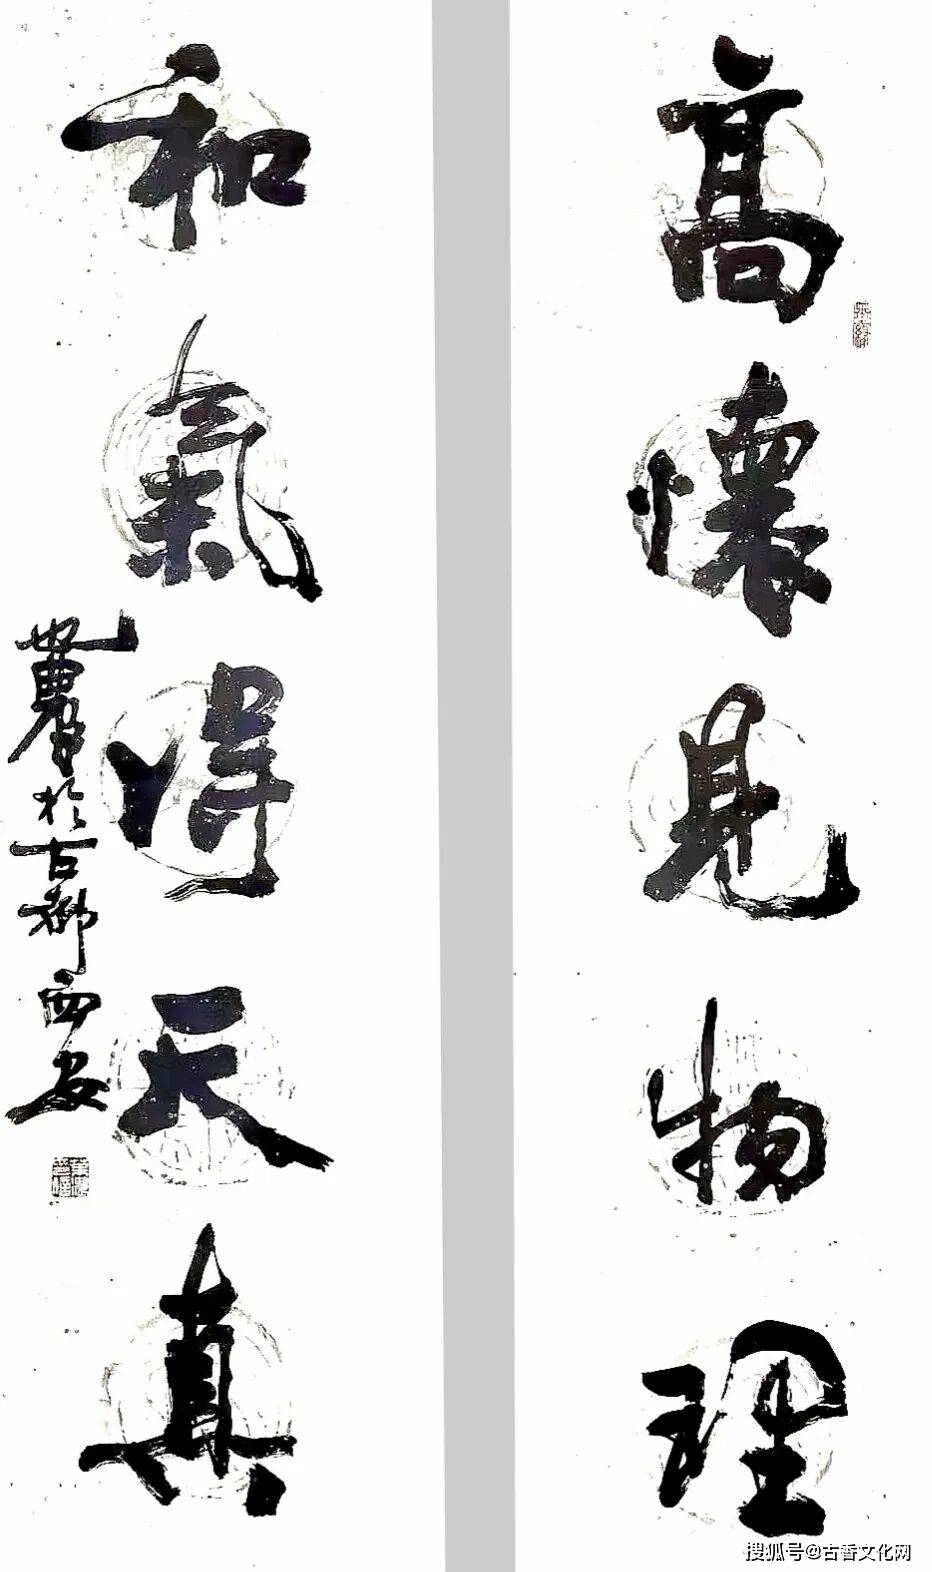 高懷見物理
和氣得天真
於古都西安
搜狐号@古香文化网